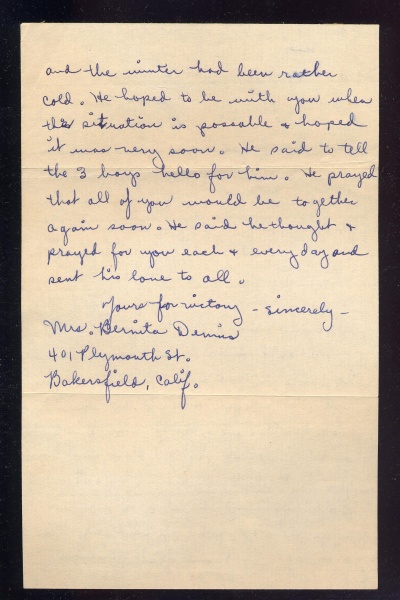 and the winter had been rather
cold. He hoped to be with you when
this situation is possable & hoped
it was very soon. He said to tell
the 3 boys hello for him. He prayed
that all of you would be together
again soon. He said he thought &
prayed for you each & every day and
sent his love to all.
Yours for victory - Sincerely -
Mrs. Bernita Dennis
401 Plymouth St.
Bakersfield, Calif.